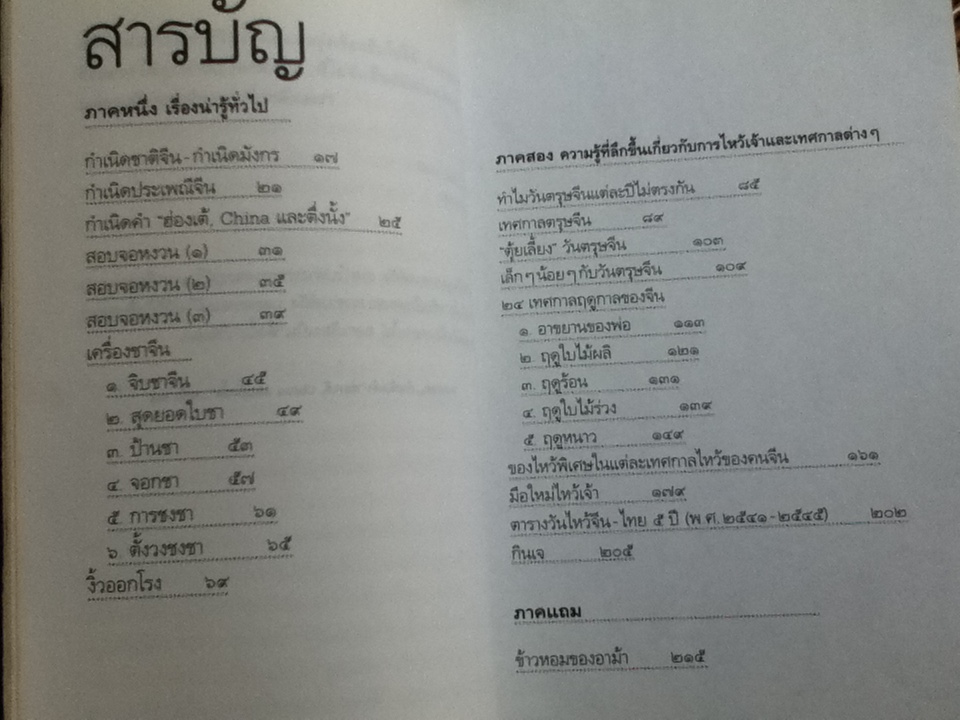 สารบัญ
ภาคหนึ่ง เรื่องน่ารู้ทั่วไป
กำเนิดชาติจีน - กำเนิดมังกร ๑๗
กำเนิดประเพณีจีน ๒๑
กำเนิดคำ "ฮ่องเต้, China และตึ่งนั้ง" ๒๕
สอบจอหงวน (๑) ๓๑
สอบจอหงวน (๒) ๓๕
สอบจอหงวน (๓) ๓๙
เครื่องชาจีน
๑. จิบชาจีน ๔๕
๒. สุดยอดใบชา ๔๙
๓. ป้านชา ๕๓
๔. จอกชา ๕๗
๕. การชงชา ๖๑
๖. ตั้งวงชงชา ๖๕
งิ้วออกโรง ๖๙
ภาคสอง ความรู้ที่ลึกขึ้นเกี่ยวกับการไหว้เจ้าและเทศกาลต่างๆ
ทำไมวันตรุษจีนแต่ละปีไม่ตรงกัน ๘๕
เทศกาลตรุษจีน ๘๙
"ตุ้ยเลี้ยง" วันตรุษจีน ๑๐๓
เล็กๆน้อยๆกับวันตรุษจีน ๑๐๙
๒๔ เทศกาลฤดูกาลของจีน
๑. อาขยานของพ่อ ๑๑๓
๒. ฤดูใบไม้ผลิ ๑๒๑
๓. ฤดูร้อน ๑๓๑
๔. ฤดูใบไม้ร่วง ๑๓๙
๕. ฤดูหนาว ๑๔๙
ของไหว้พิเศษในแต่ละเทศกาลไหว้ของคนจีน ๑๖๑
มือใหม่ไหว้เจ้า ๑๗๙
ตารางวันไหว้จีน - ไทย ๕ ปี (พ.ศ.๒๕๔๑ - ๒๕๔๕) ๒๐๒
กินเจ ๒๐๕
ภาคแถม
ข้าวหอมของอาม้า ๒๑๕